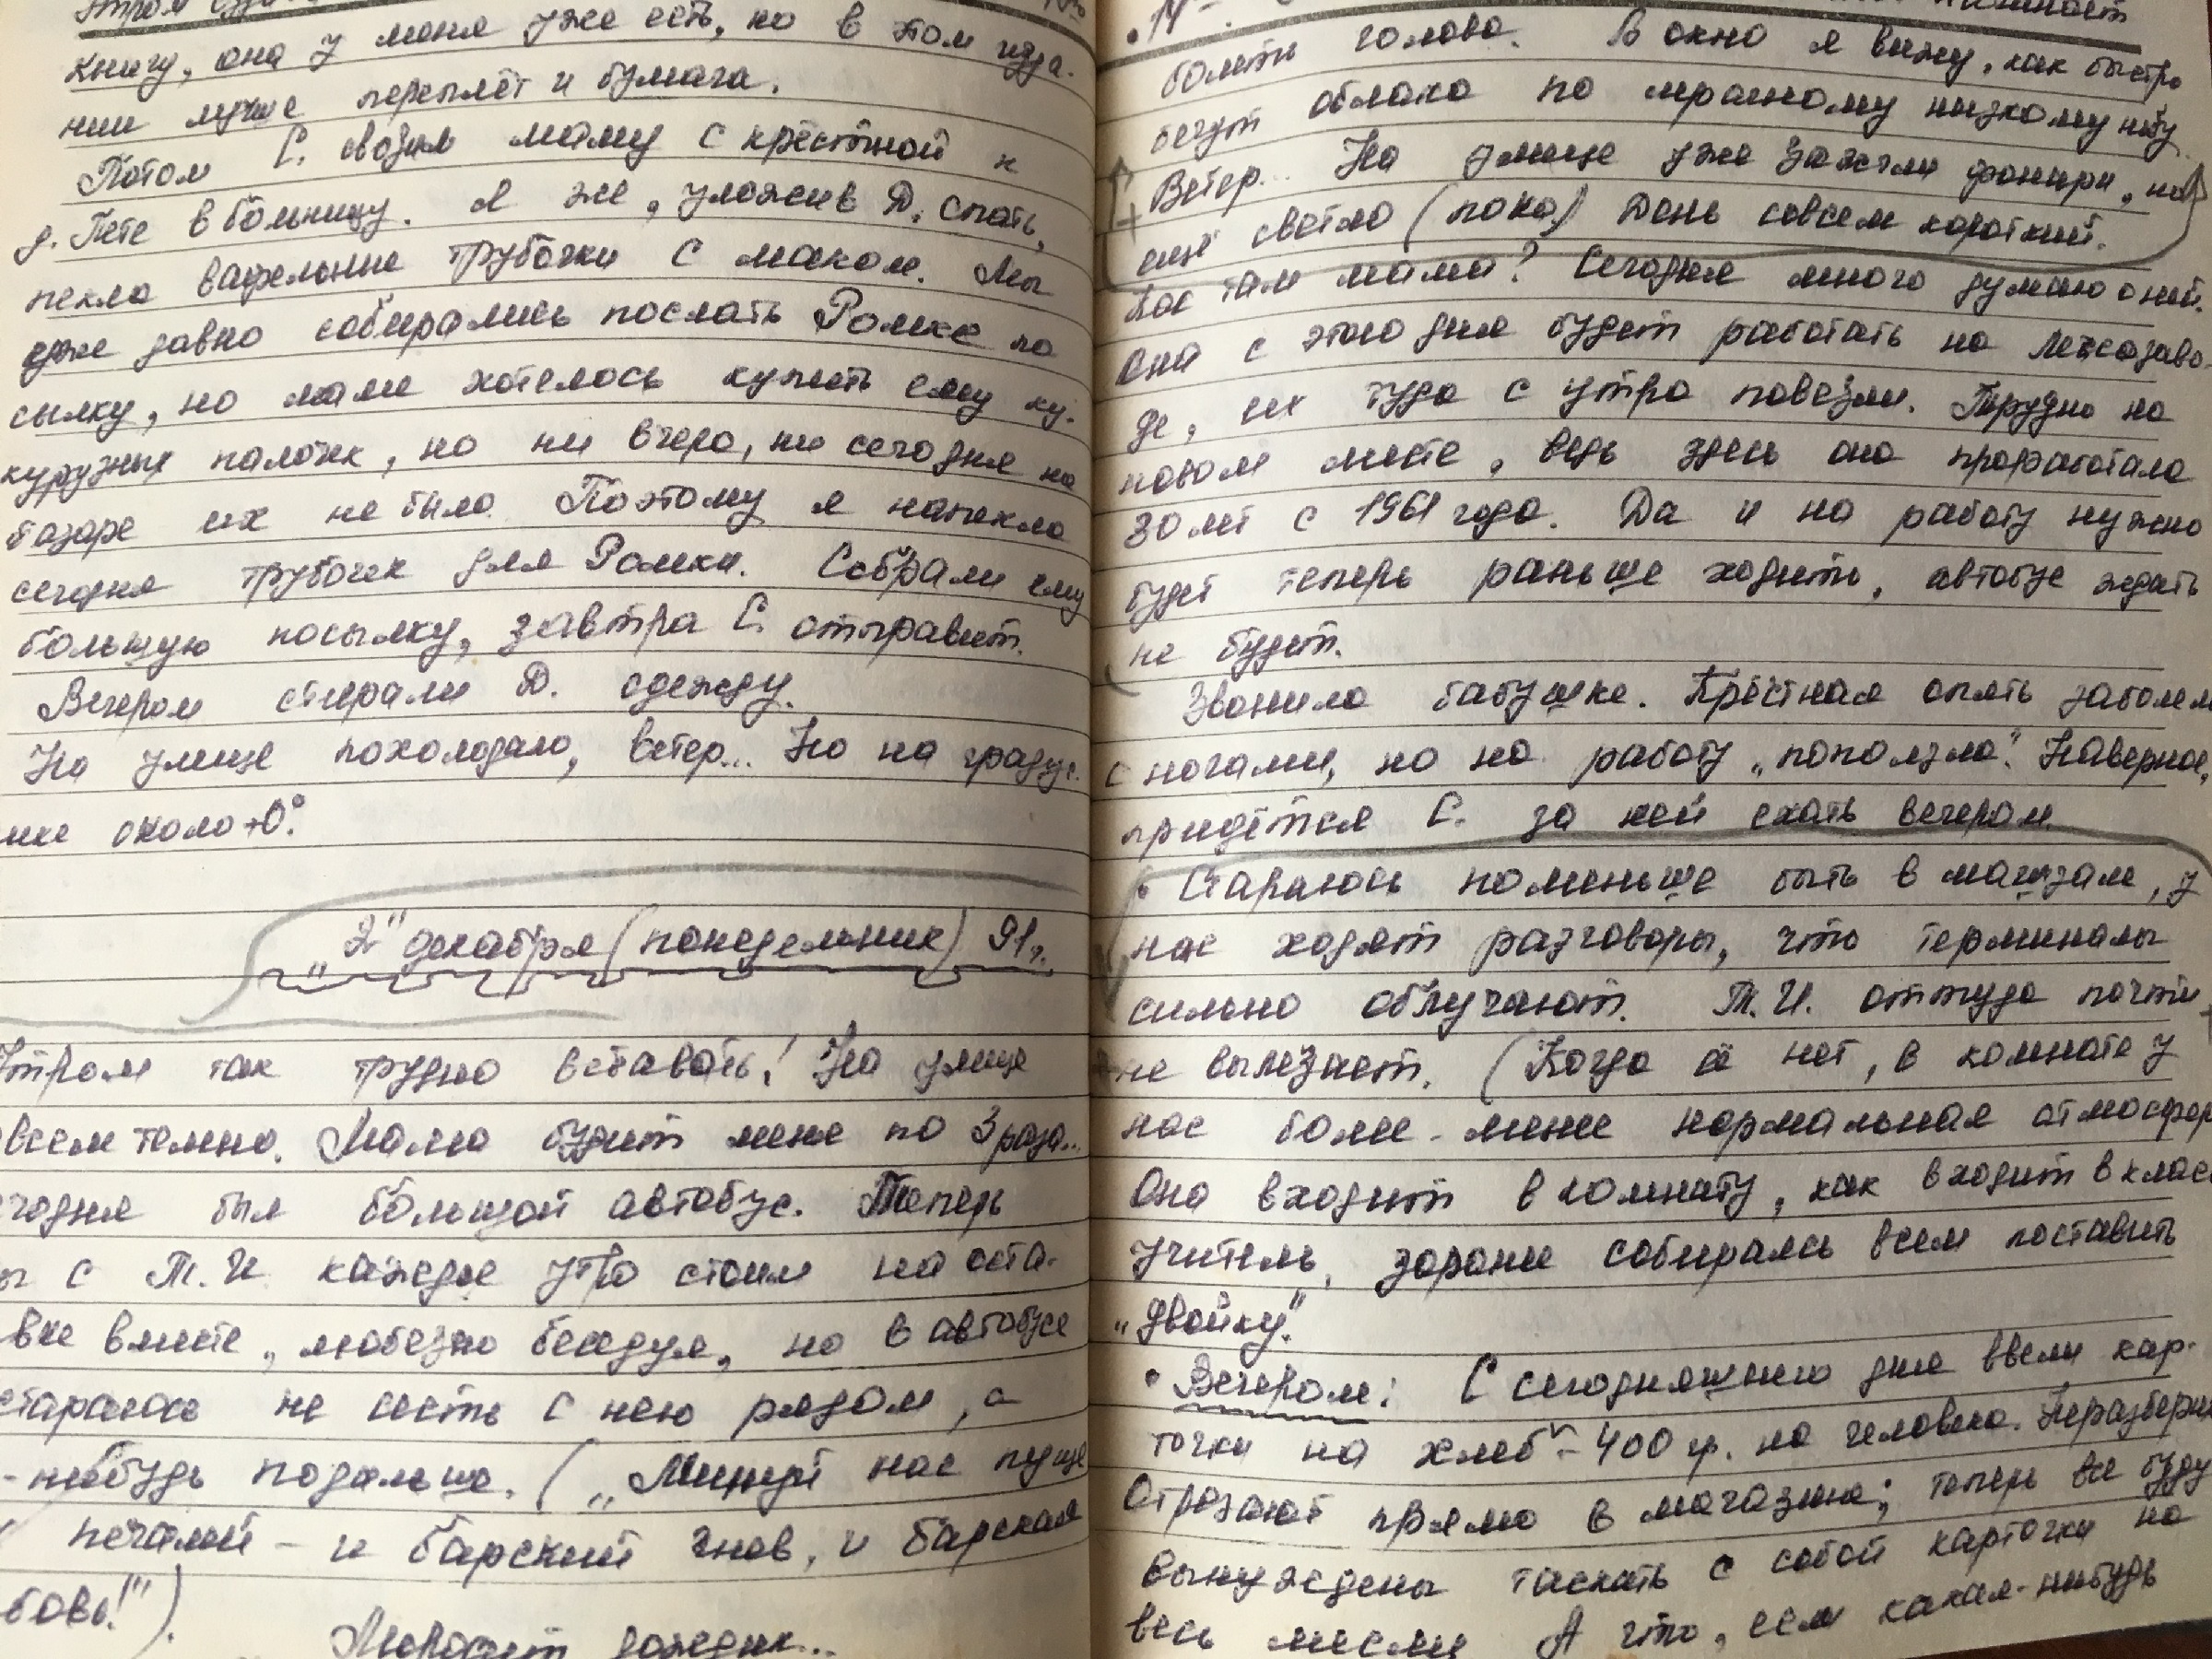 книгу, она у меня уже есть, но в этом изда-
нии лучше переплёт и бумага.
Потом С. свозил маму с крёстной к
д. Пете в больницу. Я же, уложив Д. спать,
пекла вафельные трубочки с маком. Мы
уже давно собирались послать Ромке по
сылку, но маме хотелось купить ему ку-
курузных палочек, но ни вчера, ни сегодня на
базаре их не было. Поэтому я напекла
сегодня трубочек для Ромки. Собрали ему
большую посылку, завтра С. отправит.
Вечером стирали Д. одежду.
На улице похолодало, ветер... Но на градус-
нике около +0°.
"2" декабря (понедельник) 91г.
Утром так трудно вставать! На улице
овсем темно. Мама будит меня по 3 раза...
егодня был большой автобус. Теперь
ы с Т.И. каждое утро стоим на оста-
вке вместе, любезно беседуя, но в автобусе
стараюсь не сесть с нею рядом, а
-нибудь подальше. ("Минуй нас пуще
х печалей - и барский гнев, и барская
бовь!").
Моросит дождик...
14
начинает
болеть голова. В окно я вижу, как быстро
бегут облака по мрачному низкому небу.
Ветер... На улице уже зажгли фонари, но
ещё светло (пока) День совсем короткий.
Как там мама? Сегодня много думаю о ней.
Она с этого дня будет работать на лесозаво-
де, их туда с утра повезли. Трудно на
новом месте, ведь здесь она проработала
30 лет с 1961 года. Да и на работу нужно
будет теперь раньше ходить, автобус ждать
не будет.
Звонила бабушке. Крёстная опять заболела
с ногами, но на работу "поползла". Наверное,
придётся С. за ней ехать вечером.
• Стараюсь поменьше быть в машзале, у
нас ходят разговоры, что терминалы
сильно облучают. Т.И. оттуда почти
не вылезает. (Когда её нет, в комнате у
нас более-менее нормальная атмосфер
Она входит в комнату, как входит в класс
учитель, заранее собираясь всем поставить
"двойку".
• Вечером: С сегодняшнего дня ввели кар-
точки на хлеб - 400 гр. на человека. Неразбери
Отрезают прямо в магазине; теперь все буду
вынуждены таскать с собой карточки на
весь месяц А что, если какая-нибудь